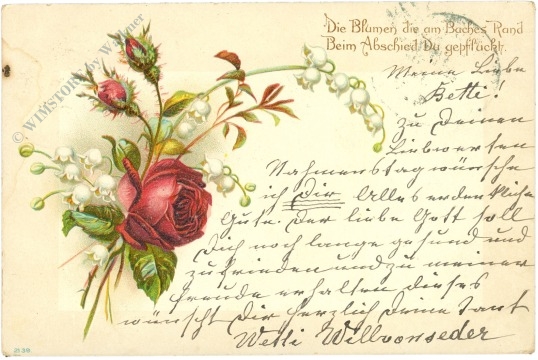 Die Blumen die am Baches Rand
Beim Abschied Du gepflückt.
Meine Liebe
Betti!
zu Deinen
Liebwerten
Nahmenstag wünsche
ich Dir Alles erdenkliche
Gute. Der liebe Gott soll
Dich noch lange gesund und
zufrieden und zu meiner
Freude erhalten dieses
wünscht Dir herzlich Deine Tant
Wetti Willvonseder
© WIMSTORY by W. Ulmer
2139